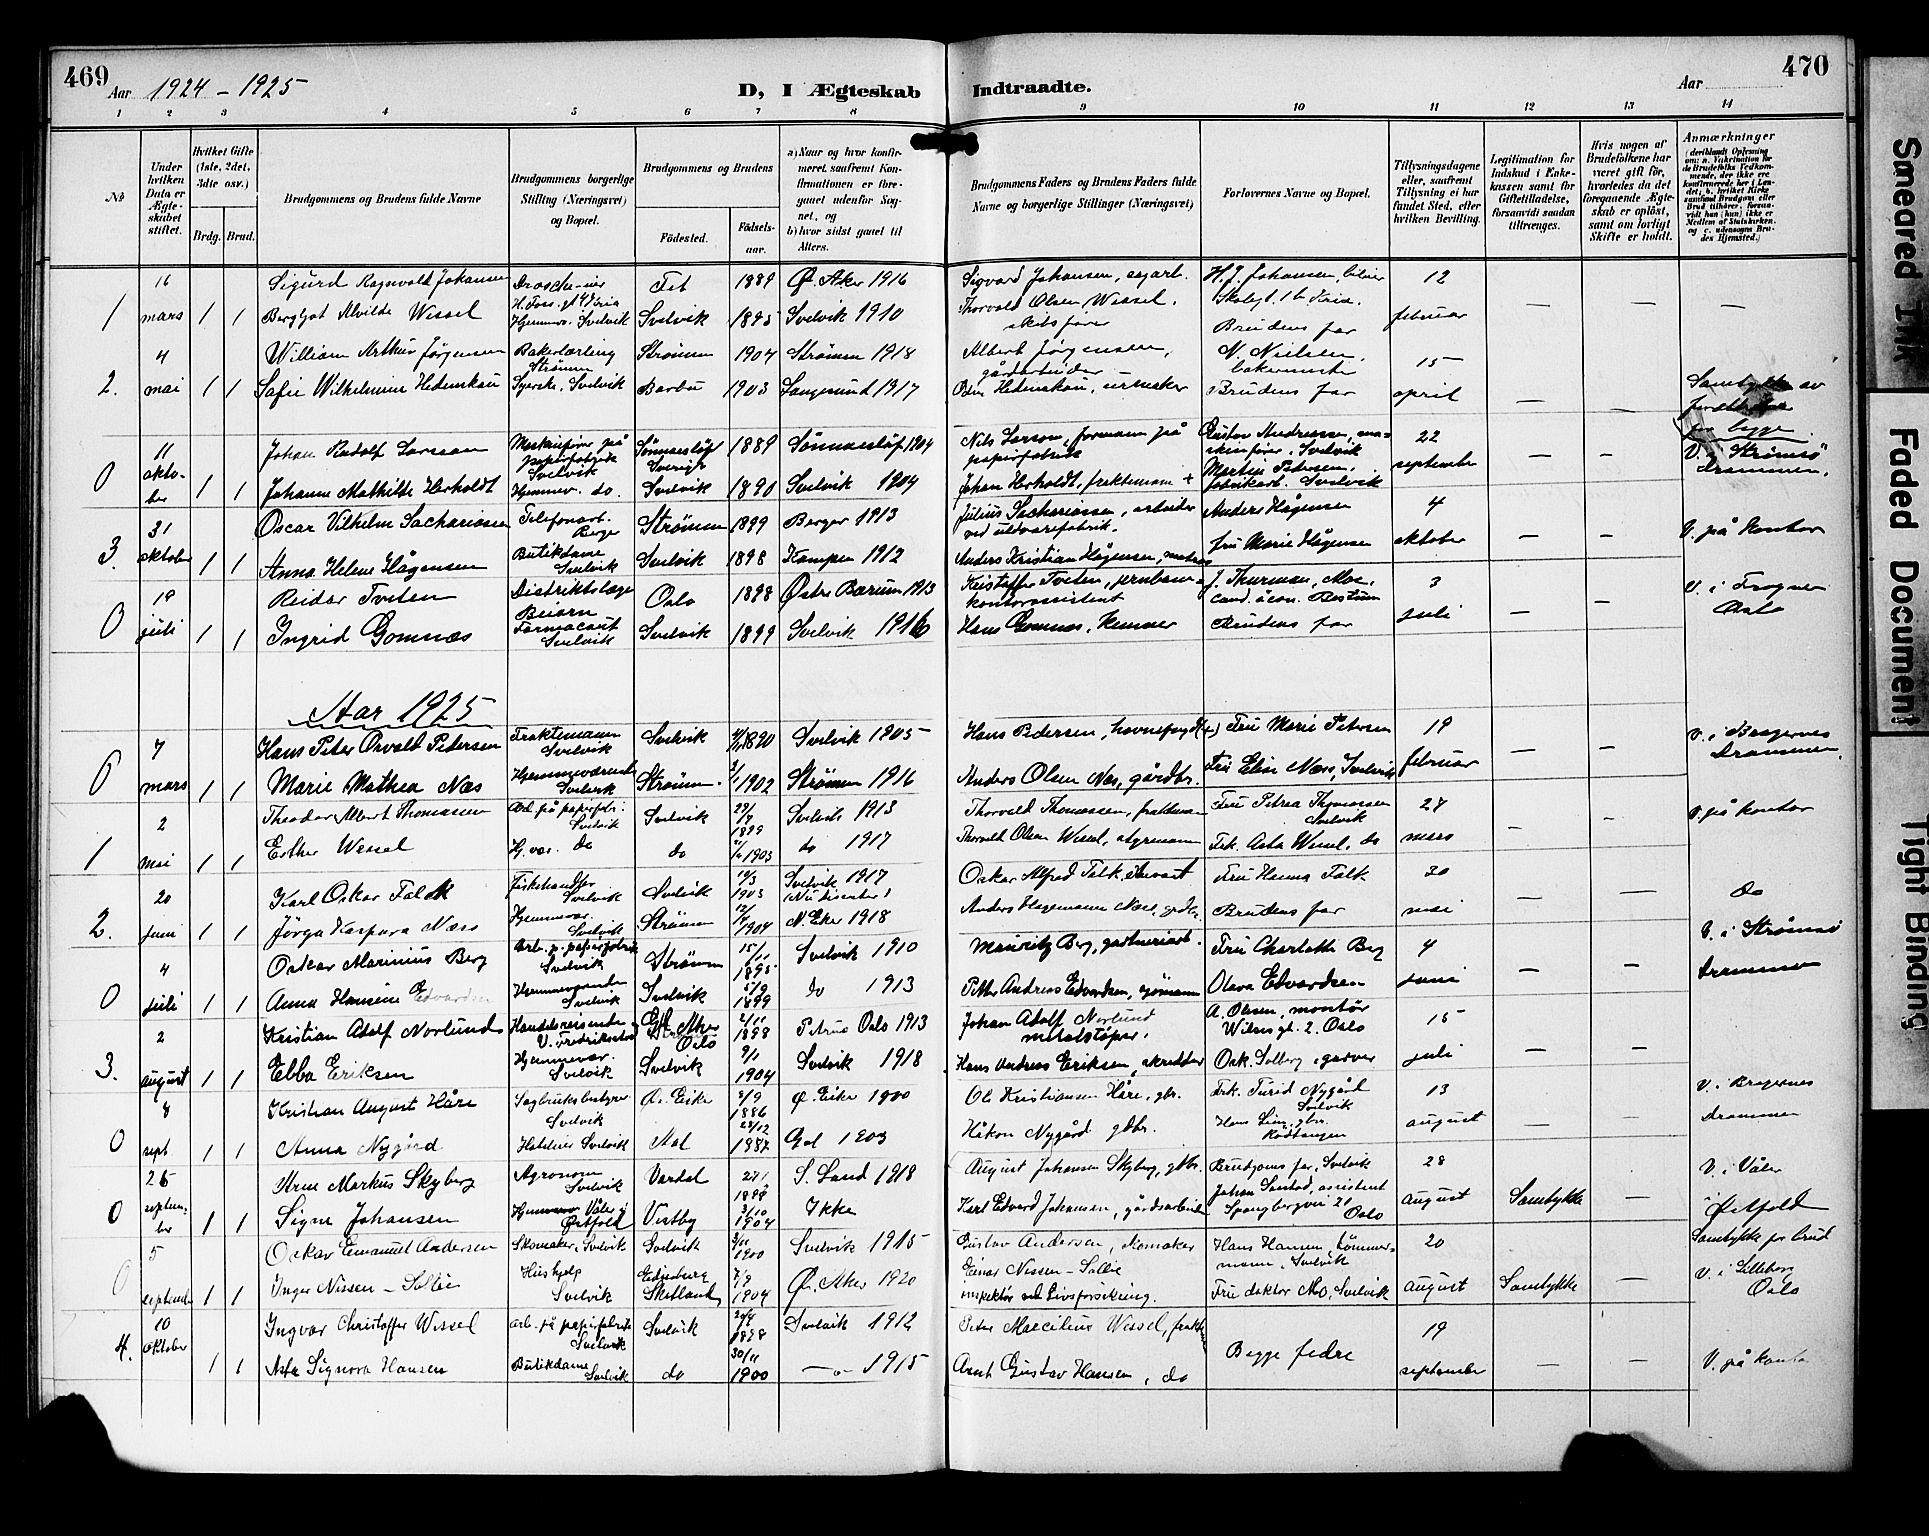 469
Aar 1924 - 1925
D, I Ægteskab
Indtraadte.
Aar
470
1 2 3 4 5 6 7 8 9 10 11 12 13 14
No
Under hvilken Data er Ægteskabet stiftet.
Hvilket Gifte (1ste, 2det, 3die osv.)
Brdg. Brud.
Brudgommens og Brudens fulde Navne
Brudgommens borgerlige Stilling (Næringsvei) og Bopæl.
Brudgommens og Brudens
Fødested.
Fødselsaar.
a) Naar og hvor konfirmeret, saafremt Konfirmationen er foregaaet udenfor Sognet, og
b) hvor sidst gaaet til Alters.
Brudgommens Faders og Brudens Faders fulde Navne og borgerlige Stillinger (Næringsvei)
Forlovernes Navne og Bopæl.
Tillysningsdagene eller, saafremt Tillysning ei har fundet Sted, efter hvilken Bevilling.
Legitimation for Indskud i Enkekassen samt for Giftetilladelse, forsaavidt saadan tiltrænges.
Hvis nogen af Brudefolkene har været gift før, hvorledes da det foregaaende Ægteskab er opløst, samt om lovligt Skifte er holdt.
Anmærkninger
16 Sigurd Ragnvald Johansen Drosche-eier Fet 1889 Ø. Aker 1916 Sigvard Johansen, H. J. Johansen, 12
1 mars 1 1 Bergljot Alvilde Wessel Hjemmev. Svelvik Svelvik 1895 Svelvik 1910 Thorvald Olsen Wessel, skibsfører Brudens far februar — — —
4 William Arthur Jørgensen Bakerlærling Strømm Strømm 1904 Strømm 1918 Albert Jørgensen, gårdarbeider N. Nielsen, bakermester 15
2. mai 1 1 Sofie Wilhelmine Hedenskau Syerske, Svelvik Barbu 1903 Langesund 1917 Hedenskau, urmaker Brudens far april — — Samtykke av begge
11 Johan Rudolf Larsson Maskinfører på papirfabrik Svelvik Sønnarsløf Sverige 1889 Sønnarsløf 1904 Nils Larson, formann på papirfabrik Gustav Andreassen, maskinfører, Svelvik 22
0 oktober 1 1 Johanne Mathilde Herholdt Hjemmev. do. Svelvik 1890 Svelvik 1904 Johan Herholdt, fraktemann + Martin Pedersen, fabrikarb. Svelvik september — — V. Strømsø Drammen.
31 Oscar Vilhelm Sachariassen Telefonarb. Berger Strømm 1899 Berger 1913 Julius Sachariassen, arbeider ved uldvarefabrik. Anders Hågensen 4
3. oktober 1 1 Anna Helene Hågensen Butikdame Svelvik Svelvik 1898 Kampen 1912 Anders Kristian Hågensen, fru Marie Hågensen oktober — — V. på kontor
19 Reidar Tveten Distriktslæge Beiarn Oslo 1898 Østre Bærum 1913 Kristoffer Tveten, jernbane-kontorassistent J. Thurman, Moe, cand. øcon. Bestum 3
0 juli 1 1 Ingrid Gomnæs Farmaceut Svelvik Svelvik 1899 Svelvik 1916 Hans Gomnæs, kemner Brudens far juli — — V. i Frogner Oslo
Aar 1925
7 Hans Peter Osvald Pedersen Fraktemann Svelvik Svelvik 1890 Svelvik 1905 Hans Pedersen, havnefogd (+) Fru Marie Petersen 19
0 mars 1 1 Marie Mathea Næs Hjemmeværende Svelvik Strømm 1902 Strømm 1916 Anders Olsen Næs, gårdbr. Fru Elise Næss, Svelvik februar — — V. i Bragernes Drammen.
2 Theodor Albert Thomassen Arb. på papirfabr. Svelvik Svelvik 1899 Svelvik 1913 Thorvald Thomassen, fraktemann Fru Petrea Thomassen Svelvik 27
1 mai 1 1 Esther Wessel Hj. vær. do do 1903 do 1917 Thorvald Olsen Wessel, styrmann Frk. Asta Wessel, do mars — — V. på kontor
20 Karl Oskar Falck Fiskehandler Svelvik Svelvik 10/3 1903 Svelvik 1917 Oskar Alfred Falk, Fru Hanna Falk 30
2. juni 1 1 Jørga Kaspara Næss Hjemmevær. Svelvik Strømm 1904 N. Eker 1918 Anders Hagemann Næss, grdbr. Brudens far mai — do
4 Oskar Marinius Berg Arb. p. papirfabrik Svelvik Strømm 15/11 1895 Svelvik 1910 Mauritz Berg, gartneriarb. Fru Charlotte Berg 4
0 juli 1 1 Anna Hansine Edvardsen Hjemmeværende Svelvik Svelvik 1899 do 1913 Petter Andreas Edvardsen, sjømann Olava Edvardsen juni — — V. i Strømsø Drammen
2 Kristian Adolf Norlunds Handelsreisende V. Fredrikstad Aker Oslo 2/11 1898 Petrus Oslo 1913 Johan Adolf Norlund metalstøper. A. Olsen, montør Wilsesgt. 2. Oslo 15
3. august 1 1 Ebba Eriksen Hjemmevær. Svelvik Svelvik 9/1 1904 Svelvik 1918 Hans Andreas Eriksen, skredder Osk. Solberg, garver juli — —
8 Kristian August Håre Sagbruksbestyrer Svelvik Ø. Eiker 8/9 1886 Ø. Eiker 1900 Ole Kristiansen Håre, gbr. Frk. Turid Nygård Svelvik 13
0 sept 1 1 Anna Nygård Hotelier Svelvik 28/12 1887 Gol 1903 Håkon Nygård gbr. Hans Lien, gbr. Rødtangen august — V. i Bragernes Drammen
26 Arne Markus Skyberg Agronom Svelvik Vardal 27/1 1898 S. Land 1918 August Johansen Skyberg, gbr. Brudgoms far, Svelvik 28
0 september 1 1 Signe Johansen Hjemmevær Våler i Østfold Vestby 3/10 1904 Ikke Karl Edvard Johansen, gårdsarbeider Johan Sandad, assistent Spangbergvei 21 Oslo august Samtykke — V. i Våler i Østfold
5 Oskar Emanuel Andersen Skomaker, Svelvik Svelvik 3/11 1900 Svelvik 1915 Gustav Andersen, skomaker Hans Hansen, tømmermann, Svelvik 20
0 september 1 1 Inger Nissen-Sollie Hushjelp Svelvik Edinburg Skotland 7/9 1904 Ø. Aker 1920 Einar Nissen-Sollie inspektør ved Livsforsikring. Fru doktor Mo, Svelvik august Samtykke — Samtykke for brud V. i Lilleborg Oslo
10 Ingvar Christoffer Wessel Arb. på papirfabrik Svelvik Svelvik 20/4 1898 Svelvik 1912 Peter Marcilius Wessel, Begge fedre 19
4. oktober 1 1 Signora Hansen Butikdame Svelvik do 30/11 1900 — 1915 Arnt Gustav Hansen, do september — — V. på kontor
Smeared Ink
Faded Document
Tight Binding